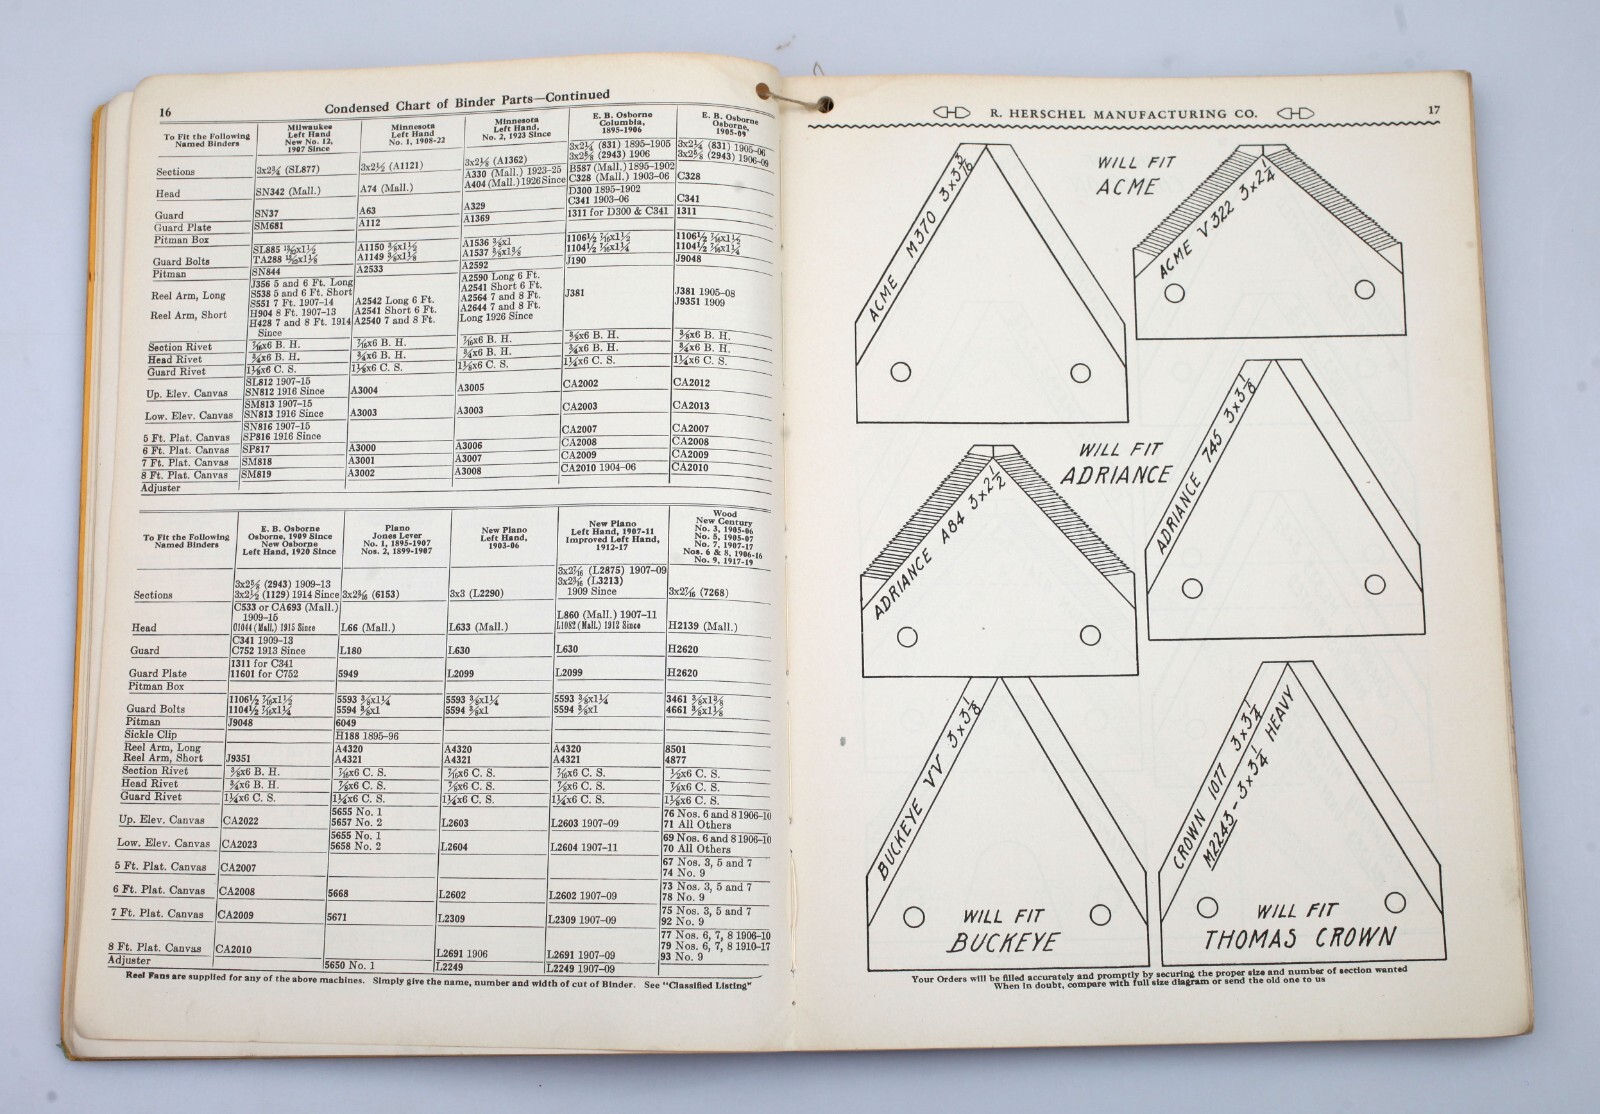 16
Condensed Chart of Binder Parts—Continued
To Fit the Following Named Binders | Milwaukee Left Hand New No. 12, 1907 Since | Minnesota Left Hand No. 1, 1908-22 | Minnesota Left Hand, No. 2, 1923 Since | E. B. Osborne Columbia, 1895-1906 | E. B. Osborne Osborne, 1905-09
Sections | 3x2¾ (SL877) | 3x2½ (A1121) | 3x2½ (A1362) | 3x2¼ (831) 1895-1905 3x2⅝ (2943) 1906 | 3x2¼ (831) 1905-06 3x2⅝ (2943) 1906-09
Head | SN342 (Mall.) | A74 (Mall.) | A330 (Mall.) 1923-25 A404 (Mall.) 1926 Since | B587 (Mall.) 1895-1902 C328 (Mall.) 1903-06 | C328
Guard | SN37 | A63 | A329 | D300 1895-1902 C341 1903-06 | C341
Guard Plate | SM681 | A112 | A1369 | 1311 for D300 & C341 | 1311
Pitman Box
Guard Bolts | SL885 TA288 | A1150 ⅜x1½ A1149 ⅜x1⅛ | A1536 ⅜x1 A1537 | 1106½ 7/16x1½ 1104½ 7/16x1¼ | 1106½ 7/16x1½ 1104½ 7/16x1¼
Pitman | SN844 | A2533 | A2592 | J190 | J9048
Reel Arm, Long
Reel Arm, Short
J356 5 and 6 Ft. Long
S538 5 and 6 Ft. Short
S551 7 Ft. 1907-14
H904 8 Ft. 1907-13
H428 7 and 8 Ft. 1914 Since
A2542 Long 6 Ft.
A2541 Short 6 Ft.
A2540 7 and 8 Ft.
A2590 Long 6 Ft.
A2541 Short 6 Ft.
A2564 7 and 8 Ft.
A2644 7 and 8 Ft.
Long 1926 Since
J381
J381 1905-08
J9351 1909
Section Rivet | 7/16x6 B. H. | 7/16x6 B. H. | 7/16x6 B. H. | ⅜x6 B. H. | ⅜x6 B. H.
Head Rivet | ¾x6 B. H. | ¾x6 B. H. | ¾x6 B. H. | ¾x6 B. H. | ¾x6 B. H.
Guard Rivet | 1⅛x6 C. S. | 1⅛x6 C. S. | 1⅛x6 C. S. | 1¼x6 C. S. | 1¼x6 C. S.
Up. Elev. Canvas | SL812 1907-15 SN812 1916 Since | A3004 | A3005 | CA2002 | CA2012
Low. Elev. Canvas | SM813 1907-15 SN813 1916 Since | A3003 | A3003 | CA2003 | CA2013
5 Ft. Plat. Canvas | SN816 1907-15 SP816 1916 Since | CA2007 | CA2007
6 Ft. Plat. Canvas | SP817 | A3000 | A3006 | CA2008 | CA2008
7 Ft. Plat. Canvas | SM818 | A3001 | A3007 | CA2009 | CA2009
8 Ft. Plat. Canvas | SM819 | A3002 | A3008 | CA2010 1904-06 | CA2010
Adjuster
To Fit the Following Named Binders | E. B. Osborne Osborne, 1909 Since New Osborne Left Hand, 1920 Since | Plano Jones Lever No. 1, 1895-1907 Nos. 2, 1899-1907 | New Plano Left Hand, 1903-06 | New Plano Left Hand, 1907-11 Improved Left Hand, 1912-17 | Wood New Century No. 3, 1905-06 No. 5, 1905-07 No. 7, 1907-17 Nos. 6 & 8, 1906-16 No. 9, 1917-19
Sections | 3x2⅝ (2943) 1909-13 3x2½ (1129) 1914 Since | 3x2 3/16 (6153) | 3x3 (L2290) | 3x2 7/16 (L2875) 1907-09 3x2 3/16 (L3213) 1909 Since | 3x2 7/16 (7268)
Head | C533 or CA693 (Mall.) 1909-15 01044 (Mall.) 1915 Since | L66 (Mall.) | L633 (Mall.) | L860 (Mall.) 1907-11 L1082 (Mall.) 1912 Since | H2139 (Mall.)
Guard | C341 1909-13 C752 1913 Since | L180 | L630 | L630 | H2620
Guard Plate | 1311 for C341 11601 for C752 | 5949 | L2099 | L2099 | H2620
Pitman Box
Guard Bolts | 1106½ 7/16x1½ 1104½ 7/16x1¼ | 5593 ⅜x1¼ 5594 ⅜x1 | 5593 ⅜x1¼ 5594 ⅜x1 | 5593 ⅜x1¼ 5594 ⅜x1 | 3461 ⅜x1⅜ 4661 ⅜x1⅛
Pitman | J9048 | 6049
Sickle Clip | H188 1895-96
Reel Arm, Long | A4320 | A4320 | A4320 | 8501
Reel Arm, Short | J9351 | A4321 | A4321 | A4321 | 4877
Section Rivet | ⅜x6 B. H. | 7/16x6 C. S. | 7/16x6 C. S. | 7/16x6 C. S. | ½x6 C. S.
Head Rivet | ¾x6 B. H. | ⅞x6 C. S. | ⅞x6 C. S. | ⅞x6 C. S. | ⅞x6 C. S.
Guard Rivet | 1¼x6 C. S. | 1¼x6 C. S. | 1¼x6 C. S. | 1¼x6 C. S. | 1⅛x6 C. S.
Up. Elev. Canvas | CA2022 | 5655 No. 1 5657 No. 2 | L2603 | L2603 1907-09 | 76 Nos. 6 and 8 1906-10 71 All Others
Low. Elev. Canvas | CA2023 | 5655 No. 1 5658 No. 2 | L2604 | L2604 1907-11 | 69 Nos. 6 and 8 1906-10 70 All Others
5 Ft. Plat. Canvas | CA2007 | 67 Nos. 3, 5 and 7 74 No. 9
6 Ft. Plat. Canvas | CA2008 | 5668 | L2602 | L2602 1907-09 | 73 Nos. 3, 5 and 7 78 No. 9
7 Ft. Plat. Canvas | CA2009 | 5671 | L2309 | L2309 1907-09 | 75 Nos. 3, 5 and 7 92 No. 9
8 Ft. Plat. Canvas | CA2010 | L2691 1906 | L2691 1907-09 | 77 Nos. 6, 7, 8 1906-10 79 Nos. 6, 7, 8 1910-17 93 No. 9
Adjuster | 5650 No. 1 | L2249 | L2249 1907-09
Reel Fans are supplied for any of the above machines. Simply give the name, number and width of cut of Binder. See "Classified Listing"
R. HERSCHEL MANUFACTURING CO.
17
ACME M370 3x3 3/16
WILL FIT
ACME
ACME V322 3x2¼
ADRIANCE A84 3x2½
WILL FIT
ADRIANCE
ADRIANCE 745 3x3⅛
BUCKEYE VV 3x3⅛
WILL FIT
BUCKEYE
CROWN 1077 3x3¼
M2243 - 3x3¼ HEAVY
WILL FIT
THOMAS CROWN
Your Orders will be filled accurately and promptly by securing the proper size and number of section wanted
When in doubt, compare with full size diagram or send the old one to us